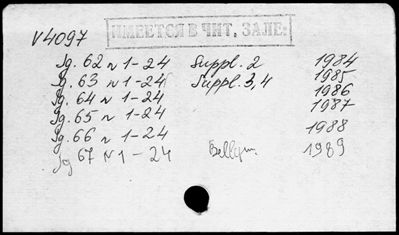 ИМЕЕТСЯ В ЧИТ. ЗАЛЕ.
V4097
Jg. 62 N 1-24 Suppl. 2 1984
Jg. 63 N 1-24 Suppl. 3,4 1985
Jg. 64 N 1-24 1986
Jg. 65 N 1-24 1987
Jg. 66 N 1-24 1988
Jg 67 N 1-24 1989